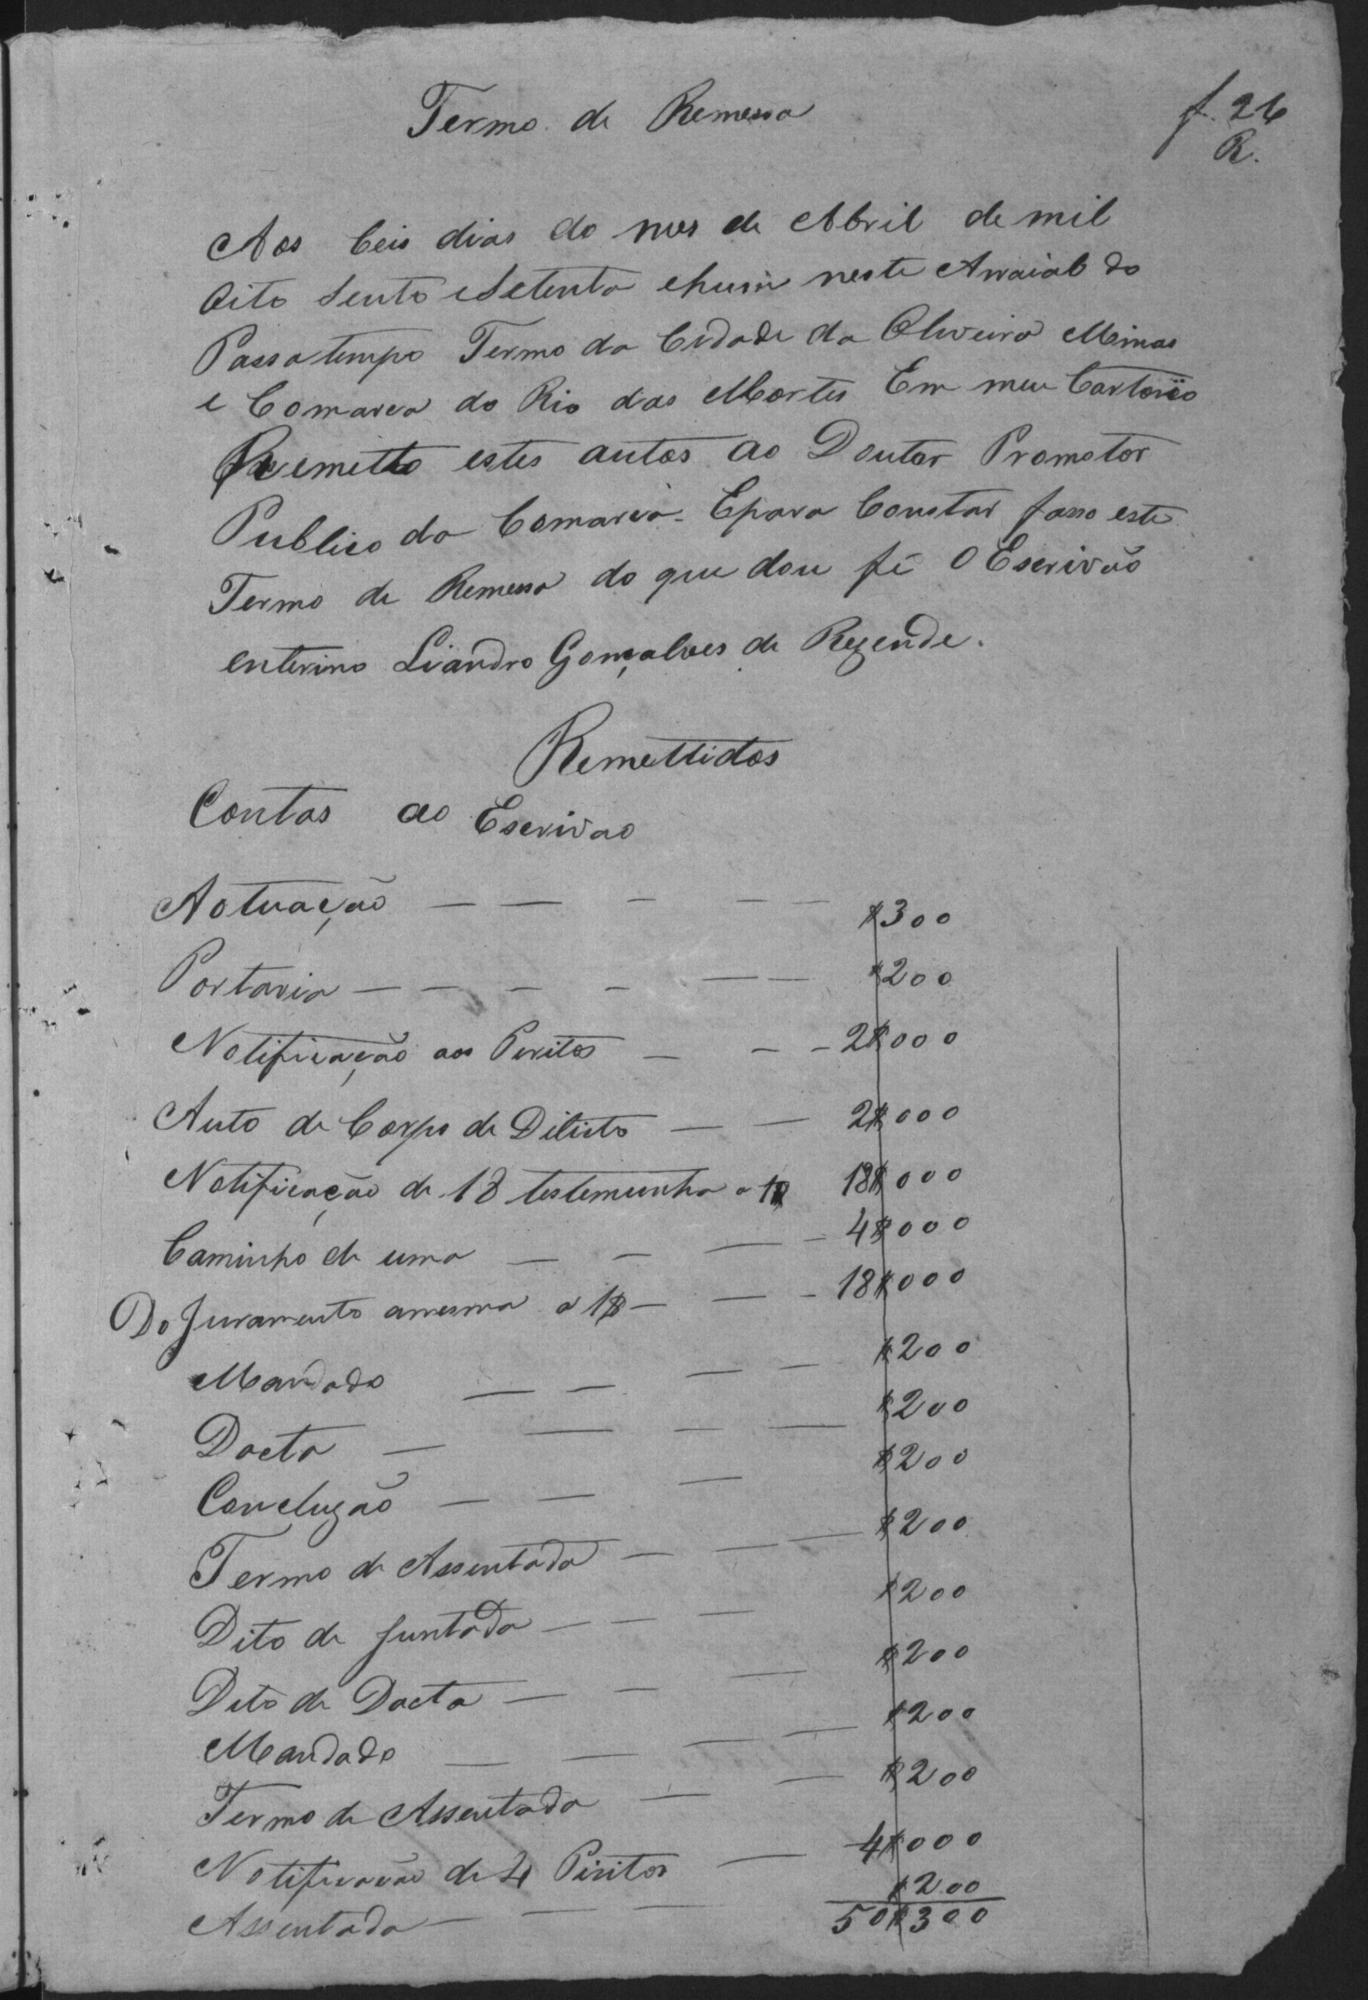 f. 26
R.
Termo de Remessa
Aos Ceis dias do mes de Abril de mil
Oito Sento eSetenta ehum neste Arraial do
Passatempo Termo da Cidade da Oliveira Minas
e Comarca do Rio das Mortes Em meu Cartorio
Remetto estes autos ao Doutor Promotor
Publico da Comarca. Epara Constar fasso este
Termo de Remessa do que dou fé O Escrivão
enterino Liandro Gonçalves de Rezende.
Remettidos
Contas ao Escrivao
Aotuação — — — — — $300
Portaria — — — — — — $200
Notificação aos Peritos — — — 2$000
Auto de Corpo de Dilicto — — 2$000
Notificação de 18 testemunha a 1$ 18$000
Caminho de uma — — — — 4$000
Do Juramento amesma a 1$ — — — 18$000
Mandado — — — — $200
Dacta — — — — $200
Concluzão — — — $200
Termo de Assentada — — — — $200
Dito de Juntada — — — $200
Dito de Dacta — — — $200
Mandado — — — — $200
Termo de Assentada — — $200
Notificacao de 4 Piritos — 4$000
Assentada — — — $200
50$300